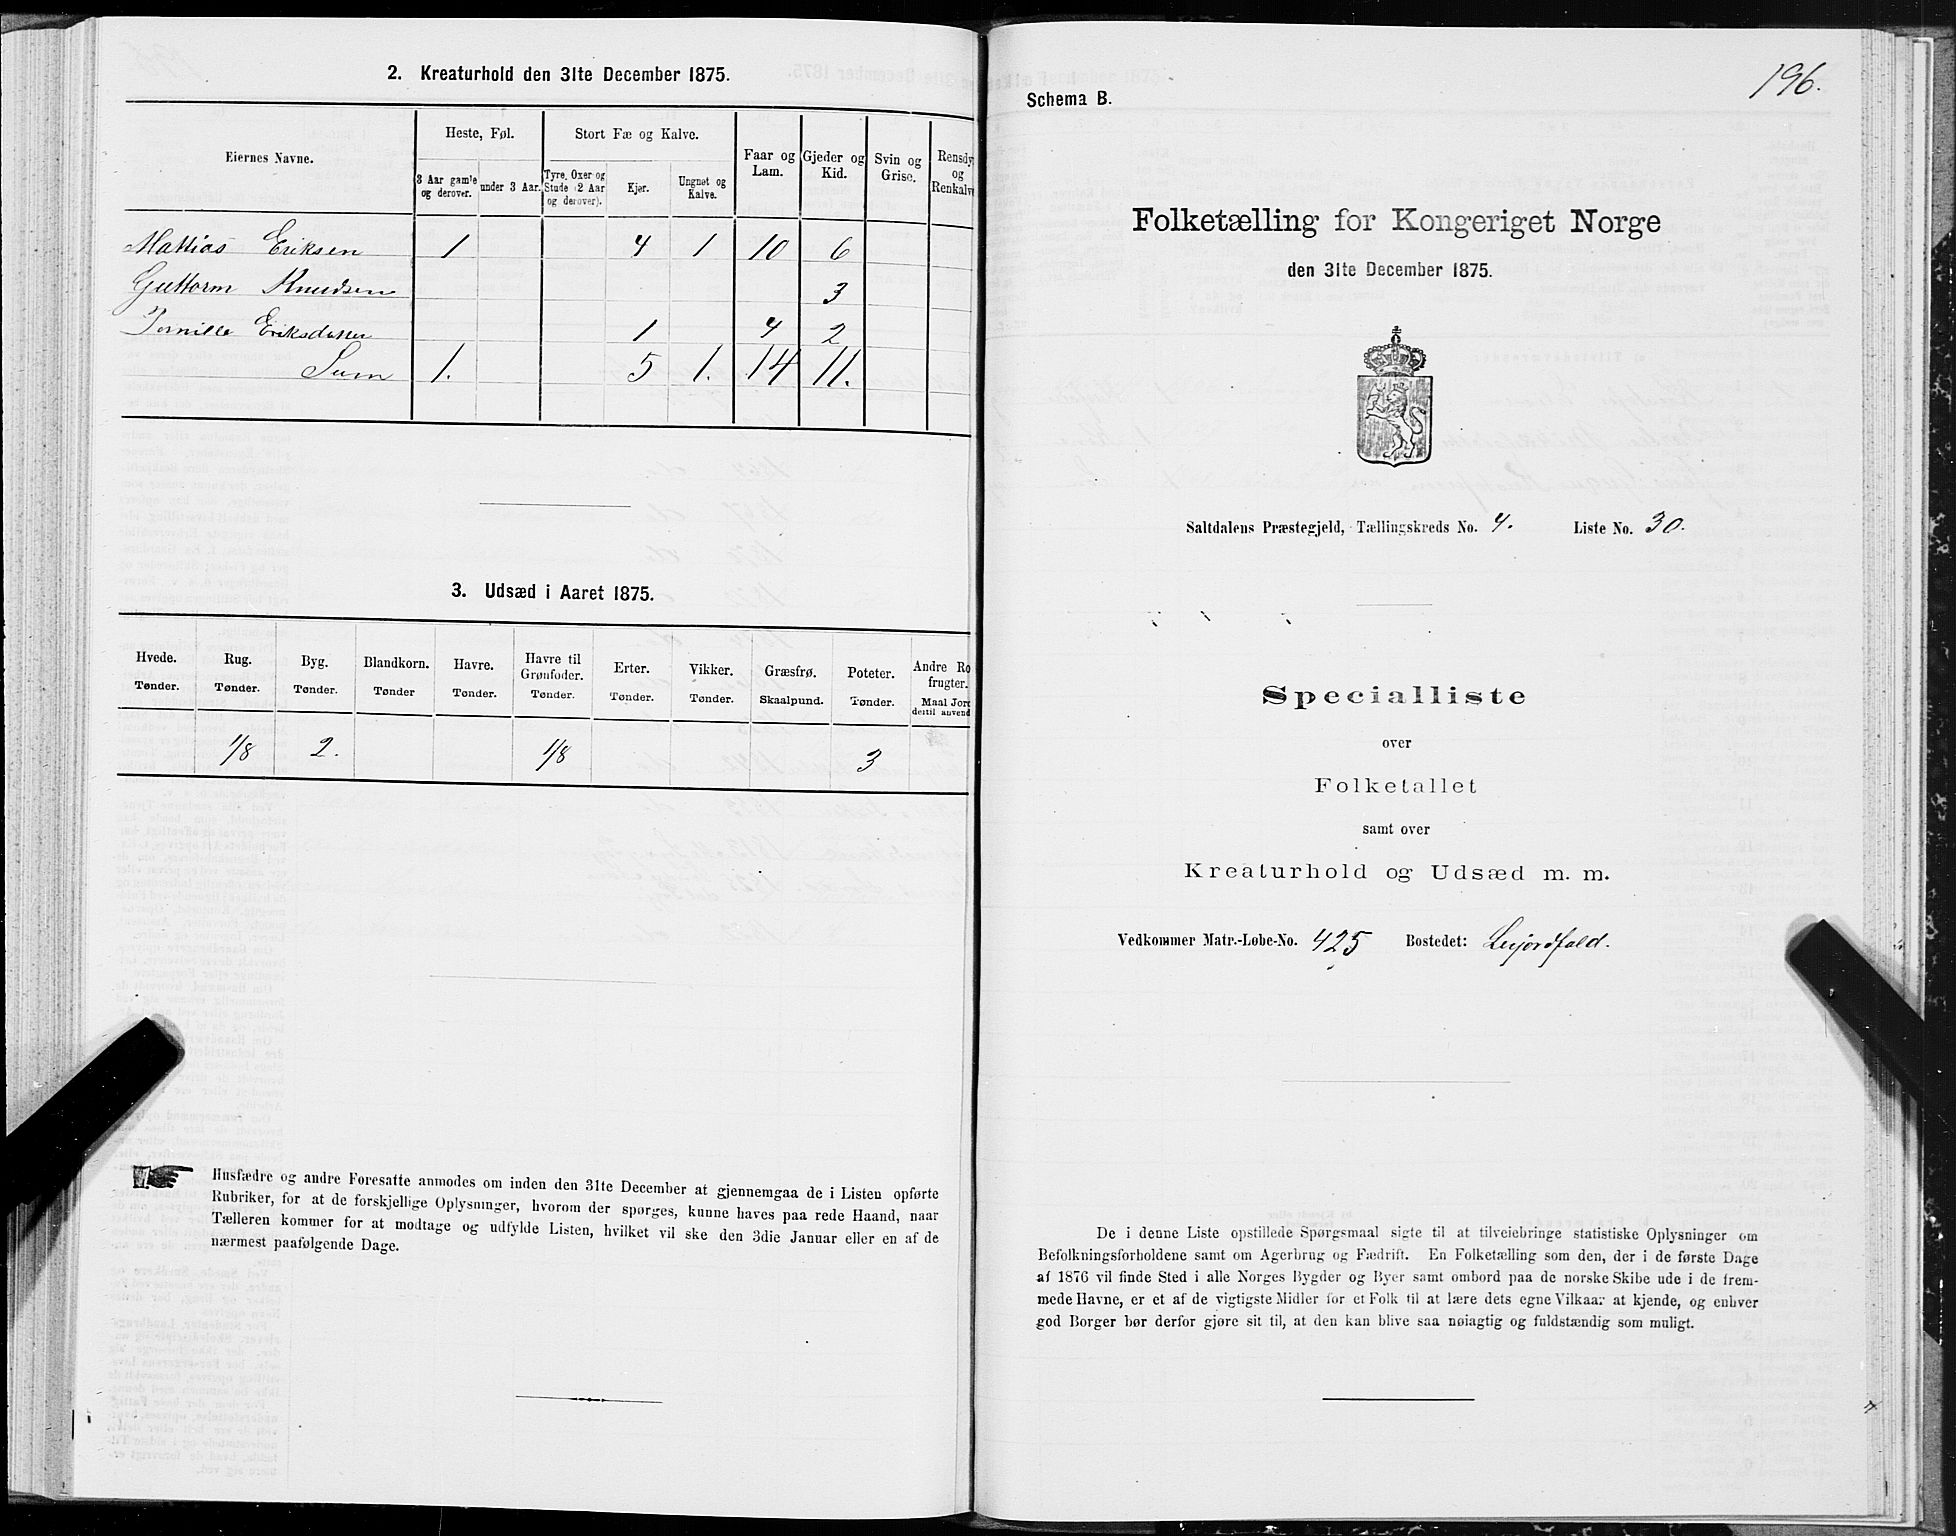 2. Kreaturhold den 31te December 1875.
Eiernes Navne.
Heste, Føl.
Stort Fæ og Kalve.
Faar og Lam.
Gjeder og Kid.
Svin og Grise.
Rensdy
og
Renkalve
3 Aar gamle og derover.
under 3 Aar.
Tyre, Oxer og Stude (2 Aar og derover).
Kjør.
Ungnøt og Kalve.
Mattias Eriksen 1 4 1 10 6
Guttorm Knudsen 3
Pernille Eriksdatter 1 4 2
Sum 1. 5 1. 14 11.
3. Udsæd i Aaret 1875.
Hvede. Rug. Byg. Blandkorn. Havre. Havre til Grønfoder. Erter. Vikker. Græsfrø. Poteter. Andre Ro
frugter.
Tønder. Tønder. Tønder. Tønder Tønder. Tønder. Tønder. Tønder. Skaalpund. Tønder. Maal Jord
dertil anvend
1/8 2. 1/8 3
Husfædre og andre Foresatte anmodes om inden den 31te December at gjennemgaa de i Listen opførte
Rubriker, for at de forskjellige Oplysninger, hvorom der spørges, kunne haves paa rede Haand, naar
Tælleren kommer for at modtage og udfylde Listen, hvilket vil ske den 3die Januar eller en af de
nærmest paafølgende Dage.
196.
Schema B.
Folketælling for Kongeriget Norge
den 31te December 1875.
Saltdalens Præstegjeld, Tællingskreds No. 4. Liste No. 30.
Specialliste
over
Folketallet
samt over
Kreaturhold og Udsæd m. m.
Vedkommer Matr.-Løbe-No. 425 Bostedet: Leijordfald.
De i denne Liste opstillede Spørgsmaal sigte til at tilveiebringe statistiske Oplysninger om
Befolkningsforholdene samt om Agerbrug og Fædrift. En Folketælling som den, der i de første Dage
af 1876 vil finde Sted i alle Norges Bygder og Byer samt ombord paa de norske Skibe ude i de frem-
mede Havne, er et af de vigtigste Midler for et Folk til at lære dets egne Vilkaar at kjende, og enhver
god Borger bør derfor gjøre sit til, at den kan blive saa nøiagtig og fuldstændig som muligt.